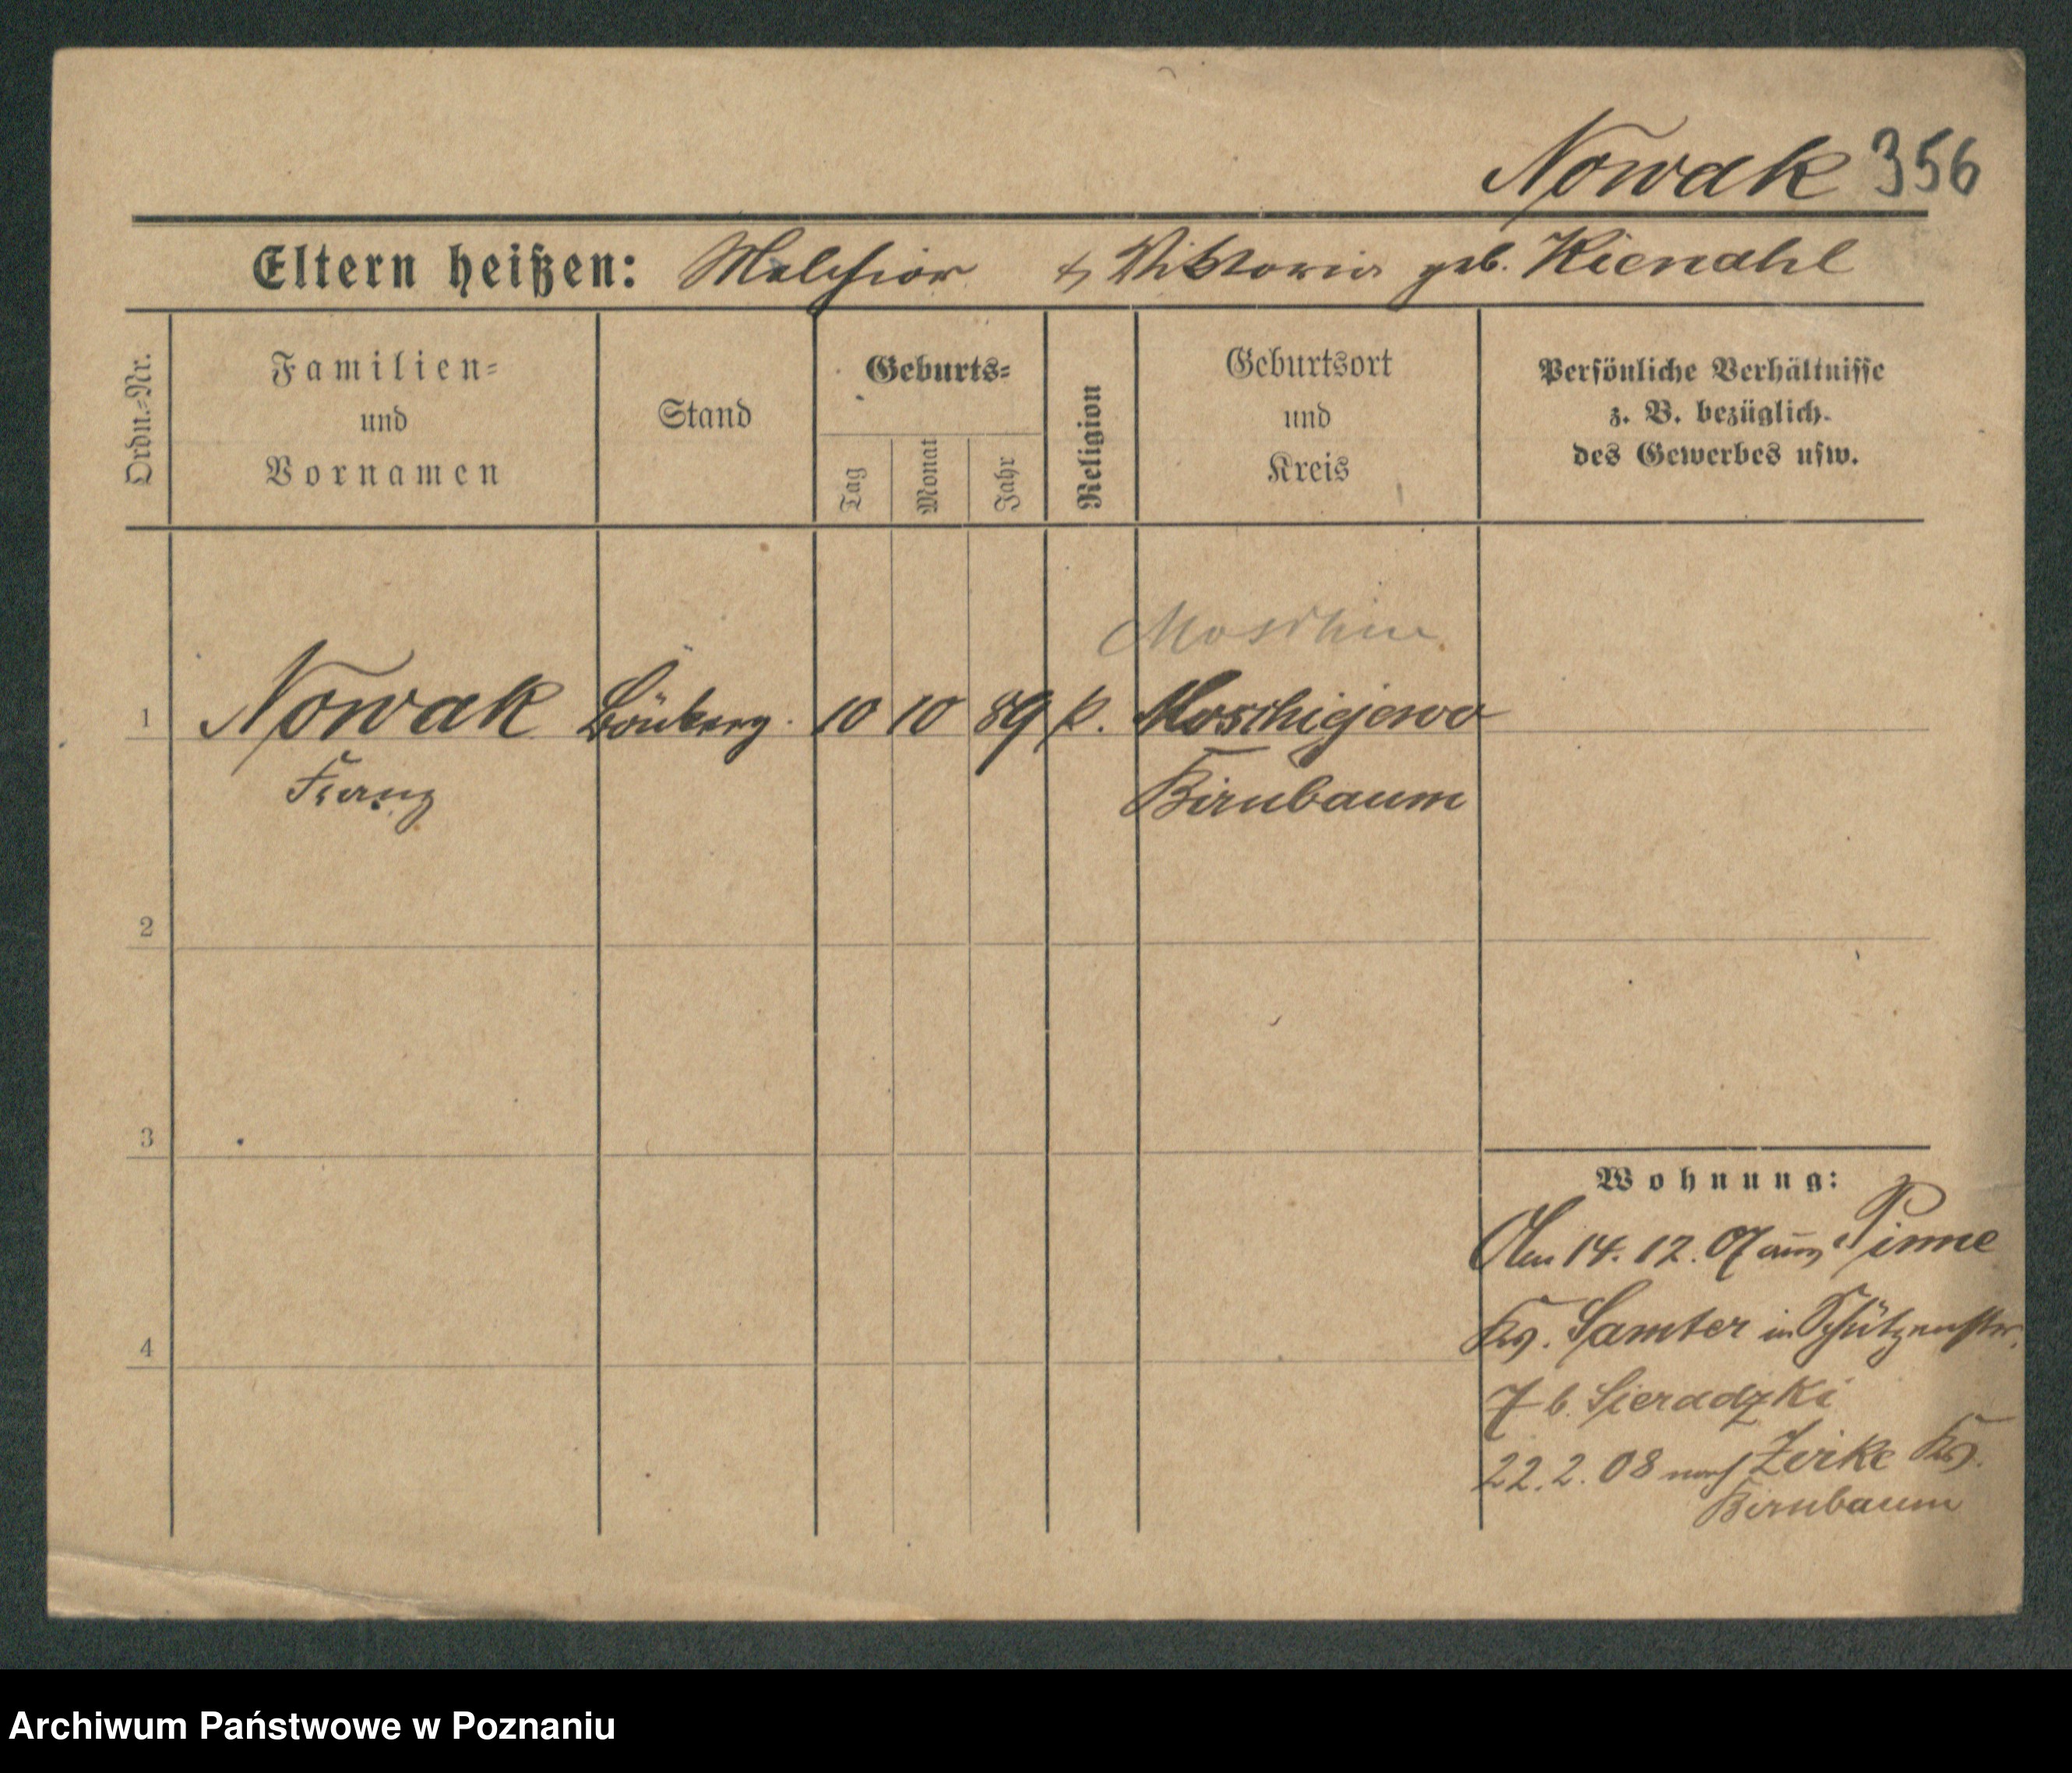 Nowak 356
Eltern heißen: Melchior & Viktoria geb. Kienahl
Ordn.-Nr.
Familien-
und
Vornamen
Stand
Geburts-
Tag
Monat
Jahr
Religion
Geburtsort
und
Kreis
Persönliche Verhältnisse
z. B. bezüglich
des Gewerbes usw.
Moschin
1 Nowak 10 10 89 k. Moschiejewo
Franz Birnbaum
2
3
4
Wohnung:
Am 14. 12. 07 aus Pinne
Krs. Samter in Schützenstr.
7 b. Sieradzki
22. 2. 08 nach Zirke Krs.
Birnbaum
Archiwum Państwowe w Poznaniu